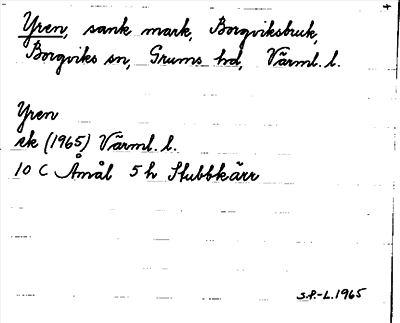 Yren, sank mark, Borgviksbruk,
Borgviks sn, Grums hd, Värml. l.
Yren
ek (1965) Värml. l.
10 C Åmål 5 h Stubbkärr
S.P.-L. 1965